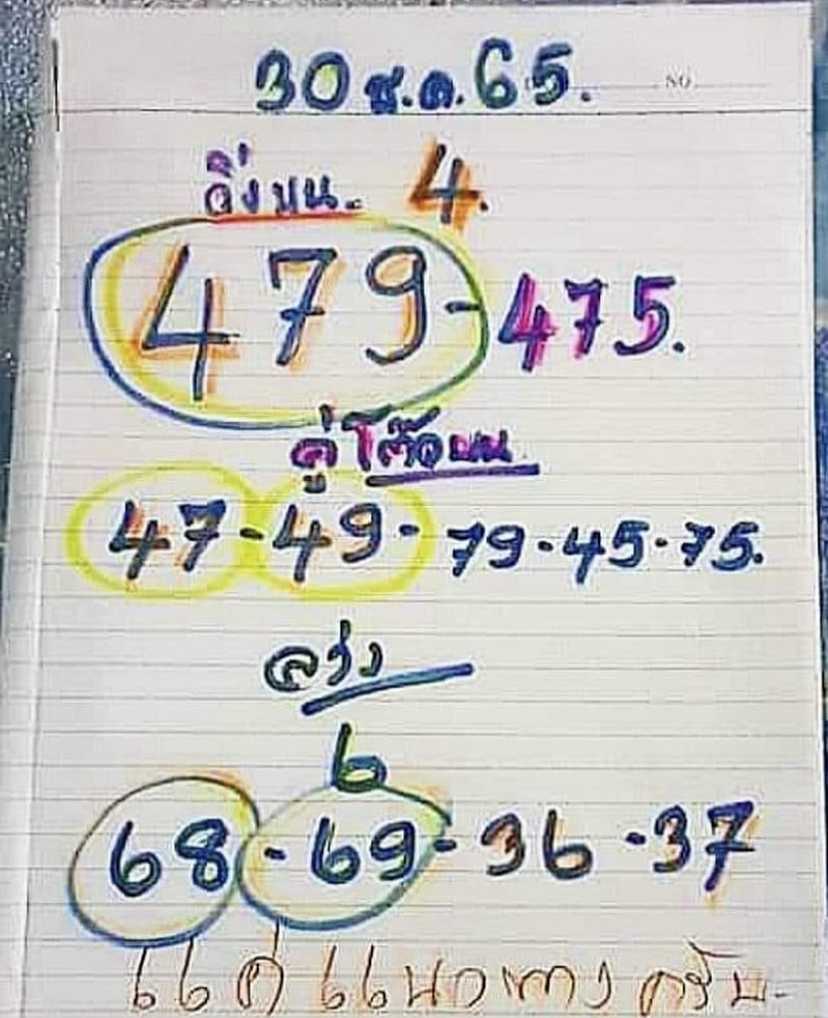 NO.
30 ธ.ค. 65.
วิ่งบน. 4.
479-475.
คู่โต๊ดบน
47-49-79-45-75.
ล่าง
6
68-69-36-37
แค่แนวทางครับ.